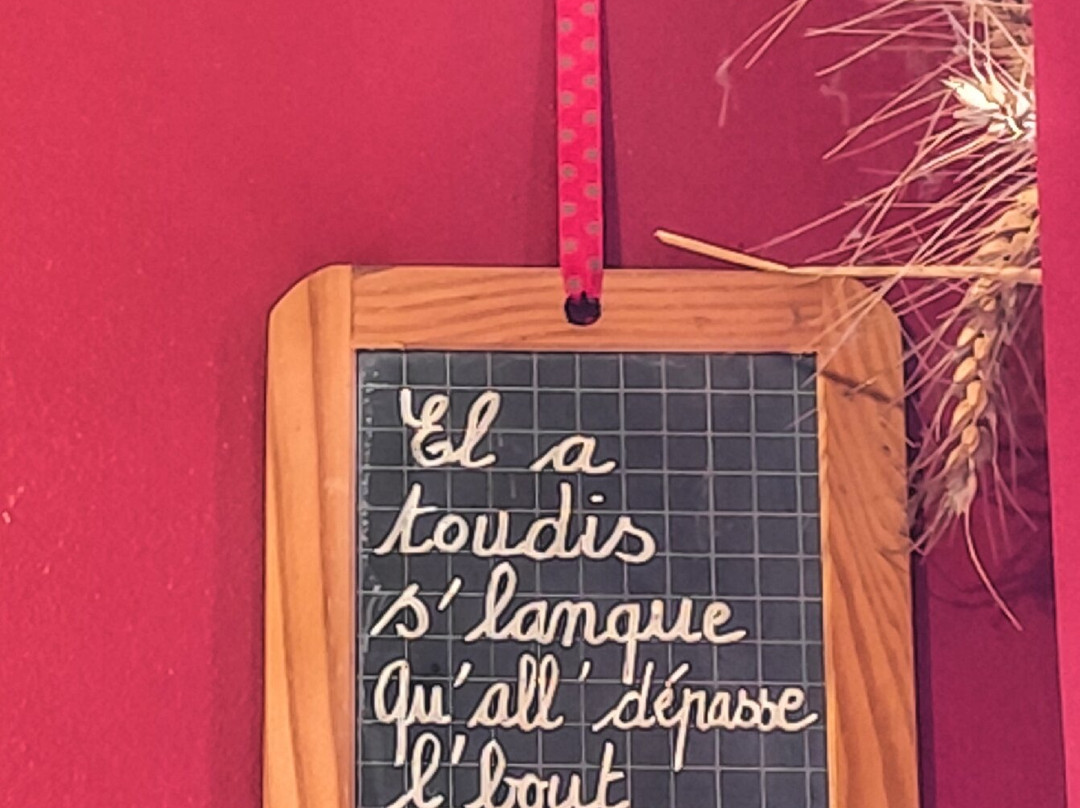 El a
toudis
s'langue
Qu'all' dépasse
l'bout